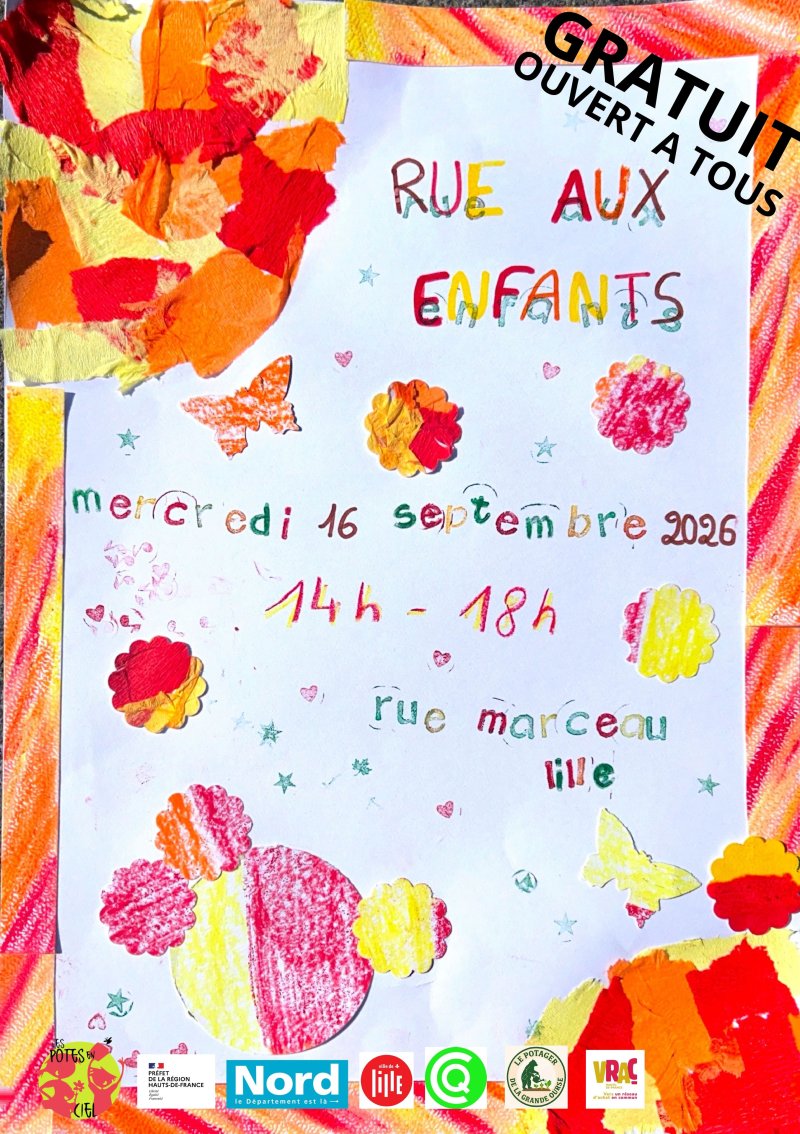 GRATUIT
OUVERT A TOUS
RUE AUX
rue aux
ENFANTS
enfants
mercredi 16 septembre 2026
14h - 18h
rue marceau
lille
LES
POTES EN
CIEL
PRÉFET
DE LA RÉGION
HAUTS-DE-FRANCE
Liberté
Égalité
Fraternité
Nord
le Département est là →
ville de
lille
LE POTAGER
DE LA GRANDE OURSE
VRAC
HAUTS-DE-FRANCE
Vers un réseau
d'achat en commun